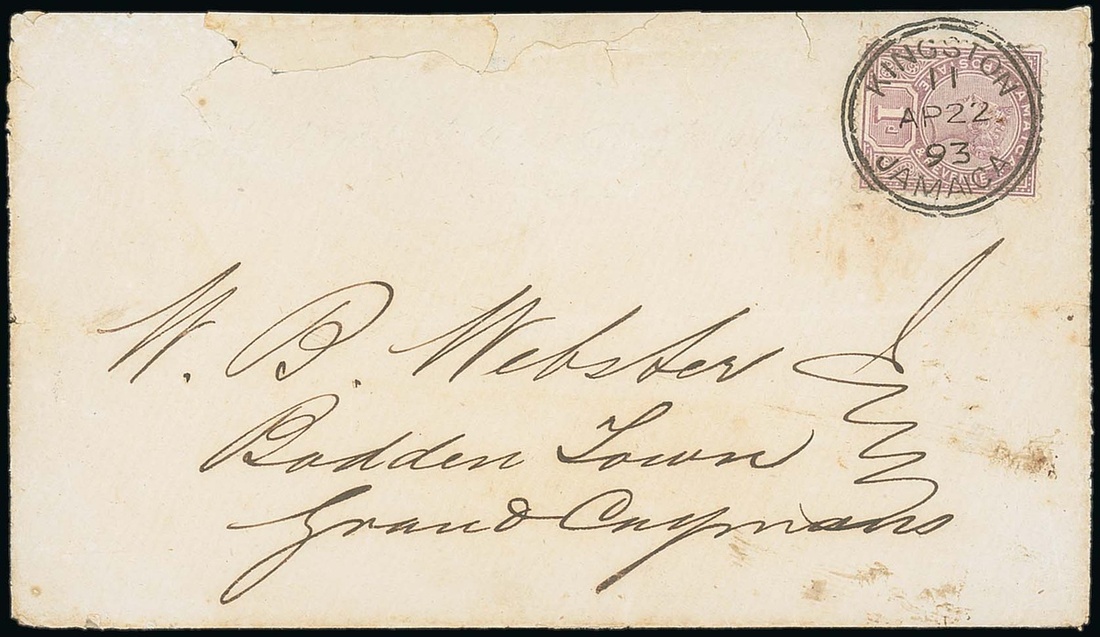 KINGSTON
11
AP 22
93
JAMAICA
W. B. Webster
Bodden Town
Grand Caymans